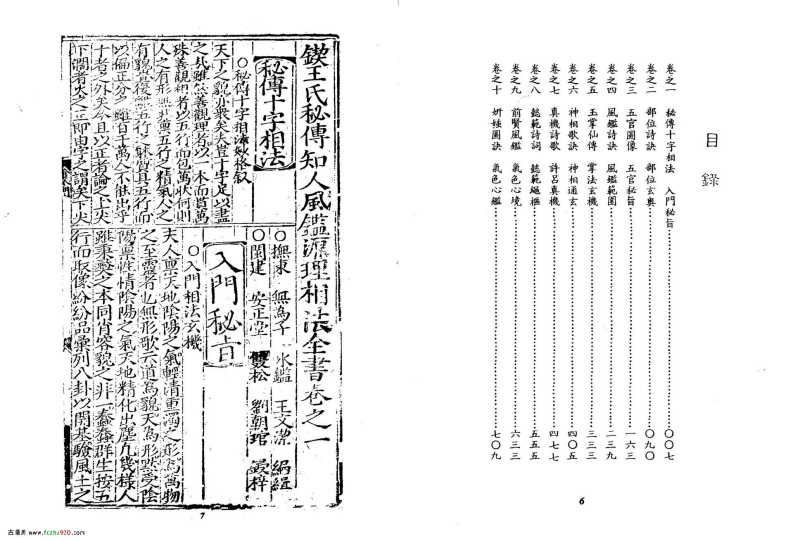 目錄
卷之一 秘傳十字相法 入門秘旨……〇〇七
卷之二 部位詩訣 部位玄奧……〇九〇
卷之三 五官圖像 五官秘旨……一六三
卷之四 風鑑詩訣 風鑑範圍……二三九
卷之五 玉掌仙傳 掌法玄機……三三三
卷之六 神相歌訣 神相通玄……四〇五
卷之七 真機詩訣 許呂真機……四七七
卷之八 懿範詩詞 懿範軀樞……五五五
卷之九 前賢風鑑 氣色心境……六三三
卷之十 妍媸圖訣 氣色心鑑……七〇九
6
鍥王氏秘傳知人風鑑源理相法全書卷之一
秘傳十字相法
〇秘傳十字相法妙格叙
天下之貌亦衆矣大畧十字足以盡
之此雖然善觀理者以一木而當萬
株善觀相者以五行而見萬狀何則
人之有形無非五行之精氣人之
有貌豈後離五行之五行而
以偏正分之雖百千萬人不能出乎
十者之外矣今且以正者論之上尖
下濶者火之即由字之謂矣下尖
〇撫東 無為子 水鑑 王文潔 編緝
〇閩建 安正堂 雙松 劉朝琯 梓
入門秘旨
〇入門相法玄機
夫人稟天地陰陽之氣輕清重濁之形為萬物
之至靈者也無形歌六道為貌天為形默受陰
陽稟性情陰陽之氣天地精化出塵凡幾樣人
雖秉彝之本同肖容貌之非一蠢蠢群生按五
行而取像紛紛品彙列八卦以開基驗風土之
7
www.fczhu920.com